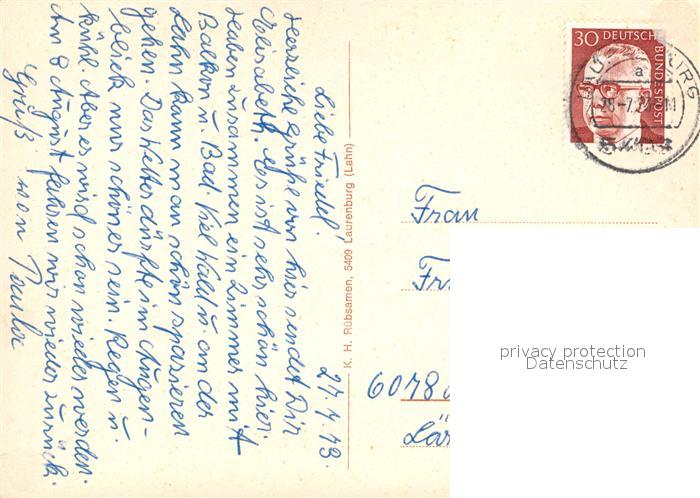 27.7.73.
Liebe Friedel!
Herzliche Grüße von hier sendet Dir
Elisabeth. Es ist sehr schön hier.
Haben zusammen ein Zimmer mit
Balkon u. Bad. Viel Wald u. an der
Lahn kann man schön spazieren
gehen. Das Wetter dürfte im Augen-
blick nur schöner sein. Regen u.
kühl. Aber es wird schon wieder werden.
Am 8 August fahren wir wieder zurück.
Gruß von Paula
K. H. Rübsamen, 5409 Laurenburg (Lahn)
30 DEUTSCHE
BUNDESPOST
a
28.-7.
Frau
6078
privacy protection
Datenschutz